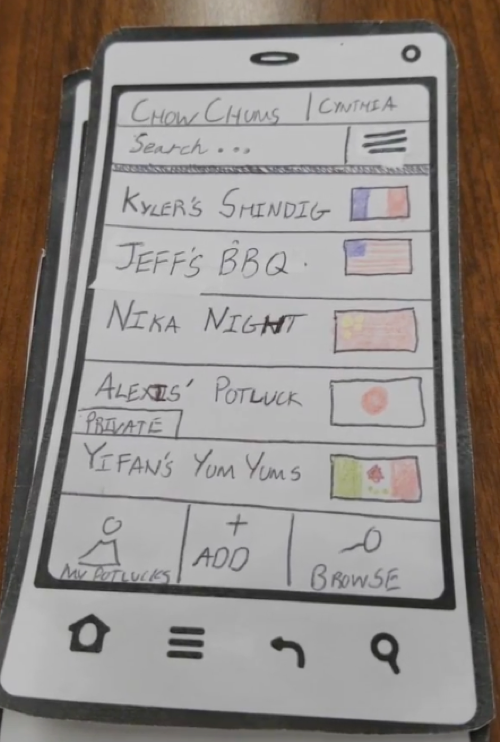 CHOW CHUMS | CYNTHIA
Search...
KYLER'S SHINDIG
JEFF'S BBQ
NIKA NIGHT
ALEXIS' POTLUCK
PRIVATE
YIFAN'S YUM YUMS
MY POTLUCKS
+
ADD
BROWSE